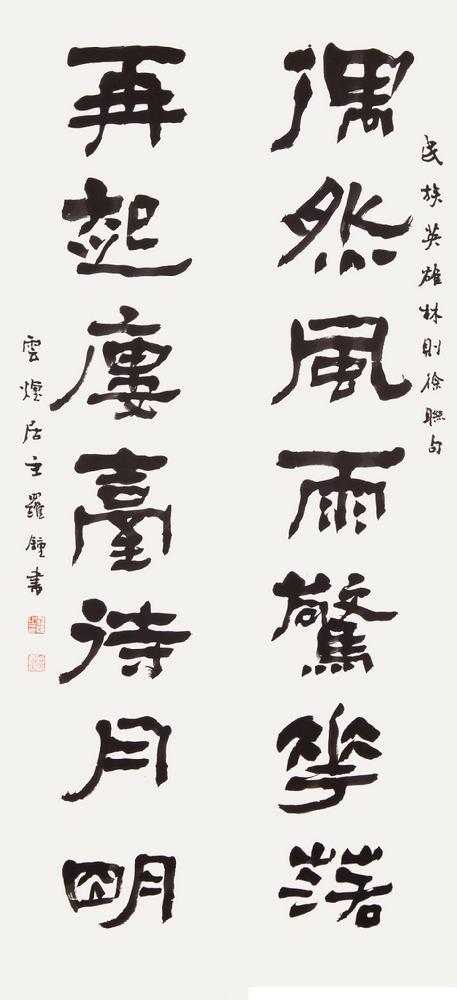 民族英雄林則徐聯句
偶然風雨驚花落
再起廔臺待月明
雲居主羅鍾書